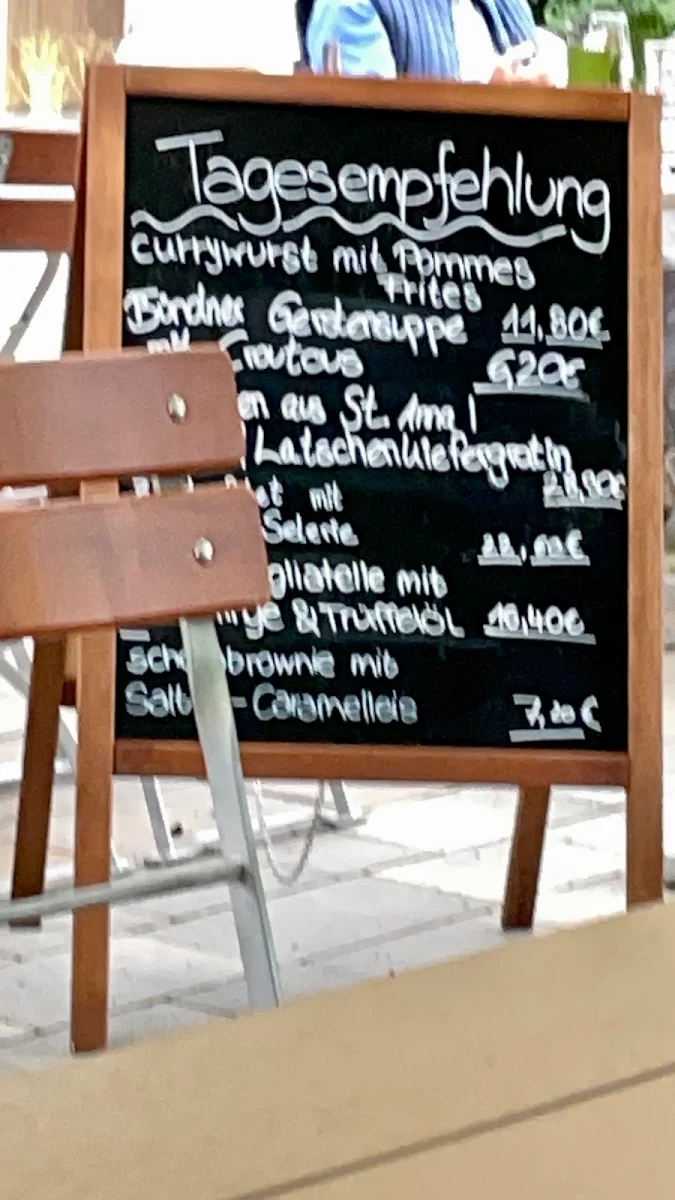 Tagesempfehlung
Currywurst mit Pommes
Frites
Bündner Gerstensuppe 11,80€
mit Croutous
6,20€
en aus St. Anna
Latschenkiefergratin
et mit
Selerie
gliatelle mit
& Trüffelöl 16,40€
brownie mit
Salt - Caramelleis
7,20€